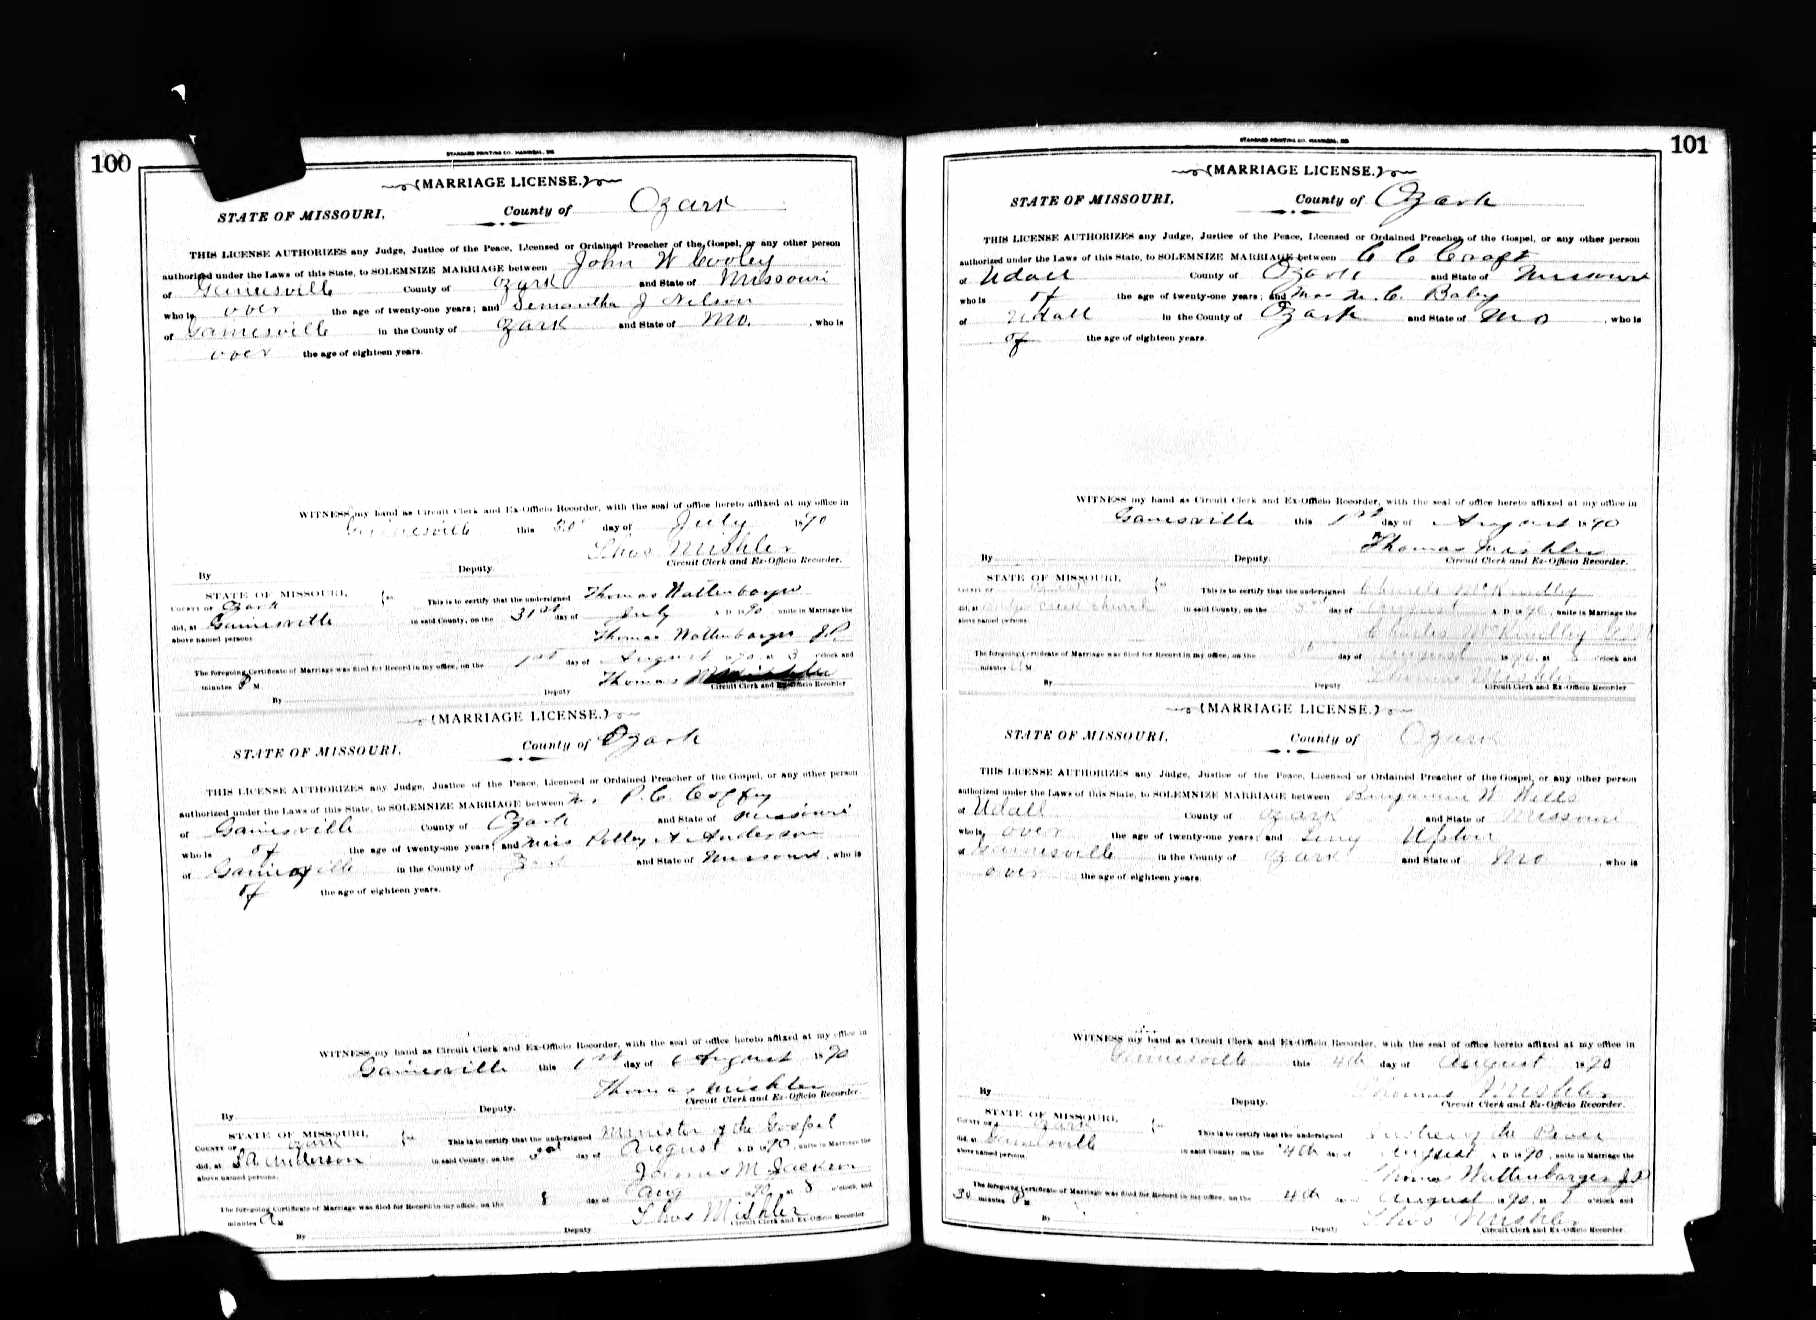 100
STANDARD PRINTING CO. HANNIBAL, MO
(MARRIAGE LICENSE.)
STATE OF MISSOURI, County of Ozark
THIS LICENSE AUTHORIZES any Judge, Justice of the Peace, Licensed or Ordained Preacher of the Gospel, or any other person
authorized under the Laws of this State, to SOLEMNIZE MARRIAGE between John W Cooley
of Gainesville County of Ozark and State of Missouri
who is over the age of twenty-one years; and Semantha J Nelson
of Gainesville in the County of Ozark and State of Mo. , who is
over the age of eighteen years.
WITNESS my hand as Circuit Clerk and Ex-Officio Recorder, with the seal of office hereto affixed at my office in
Gainesville this 30 day of July 1890
Thos Mishler
By Deputy. Circuit Clerk and Ex-Officio Recorder.
STATE OF MISSOURI, ss This is to certify that the undersigned Thomas Wallenbarger
County of Ozark
did, at Gainesville in said County, on the 31st day of July A. D. 1890, unite in Marriage the
above named persons Thomas Wallenbarger J.P
The foregoing Certificate of Marriage was filed for Record in my office, on the 1st day of August 1890, at 3 o'clock and
minutes P M. Thomas Mishler
By Deputy Circuit Clerk and Ex-Officio Recorder
(MARRIAGE LICENSE.)
STATE OF MISSOURI, County of Ozark
THIS LICENSE AUTHORIZES any Judge, Justice of the Peace, Licensed or Ordained Preacher of the Gospel, or any other person
authorized under the Laws of this State, to SOLEMNIZE MARRIAGE between P. C. Coffey
of Gainesville County of Ozark and State of Missouri
who is of the age of twenty-one years; and Miss Polley A Anderson
of Gainesville in the County of Ozark and State of Missouri, who is
of the age of eighteen years.
WITNESS my hand as Circuit Clerk and Ex-Officio Recorder, with the seal of office hereto affixed at my office in
Gainesville this 1st day of August 1890
Thomas Mishler
By Deputy. Circuit Clerk and Ex-Officio Recorder.
STATE OF MISSOURI, ss This is to certify that the undersigned Minister of the Gospel
County of Ozark
did, at Anderson in said County, on the 3rd day of August A. D. 1890, unite in Marriage the
above named persons. James M. Jackson
The foregoing Certificate of Marriage was filed for Record in my office, on the 8 day of Aug 1890, at 8 o'clock, and
minutes A M Thos Mishler
By Deputy Circuit Clerk and Ex-Officio Recorder
101
STANDARD PRINTING CO. HANNIBAL, MO
(MARRIAGE LICENSE.)
STATE OF MISSOURI, County of Ozark
THIS LICENSE AUTHORIZES any Judge, Justice of the Peace, Licensed or Ordained Preacher of the Gospel, or any other person
authorized under the Laws of this State, to SOLEMNIZE MARRIAGE between C C Croft
of Udall County of Ozark and State of Missouri
who is of the age of twenty-one years; and Mrs M. C. Baby
of Udall in the County of Ozark and State of Mo , who is
of the age of eighteen years.
WITNESS my hand as Circuit Clerk and Ex-Officio Recorder, with the seal of office hereto affixed at my office in
Gainesville this 1st day of August 1890
Thomas Mishler
By Deputy. Circuit Clerk and Ex-Officio Recorder.
STATE OF MISSOURI, ss This is to certify that the undersigned Charles McKindley
County of
did, at creek church in said County, on the 3rd day of August A. D. 1890, unite in Marriage the
above named persons Charles McKindley
The foregoing Certificate of Marriage was filed for Record in my office, on the day of August 1890, at o'clock and
minutes M Thomas Mishler
By Deputy Circuit Clerk and Ex-Officio Recorder
(MARRIAGE LICENSE.)
STATE OF MISSOURI, County of Ozark
THIS LICENSE AUTHORIZES any Judge, Justice of the Peace, Licensed or Ordained Preacher of the Gospel, or any other person
authorized under the Laws of this State, to SOLEMNIZE MARRIAGE between Benjamin W Wells
of Udall County of Ozark and State of Missouri
who is over the age of twenty-one years; and Upton
of Gainesville in the County of Ozark and State of Mo , who is
over the age of eighteen years.
WITNESS my hand as Circuit Clerk and Ex-Officio Recorder, with the seal of office hereto affixed at my office in
Gainesville this 4th day of August 1890
Thomas Mishler
By Deputy. Circuit Clerk and Ex-Officio Recorder.
STATE OF MISSOURI, ss This is to certify that the undersigned Justice of the Peace
County of Ozark
did, at Gainesville in said County on the 4th day of August A. D. 1890, unite in Marriage the
above named persons. Thomas Wallenbarger J.P
The foregoing Certificate of Marriage was filed for Record in my office, on the 4th day August 1890, at 1 o'clock and
30 minutes P M Thos Mishler
By Deputy Circuit Clerk and Ex-Officio Recorder.